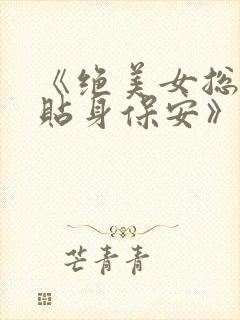 《绝美女总
贴身保安》
芒青青